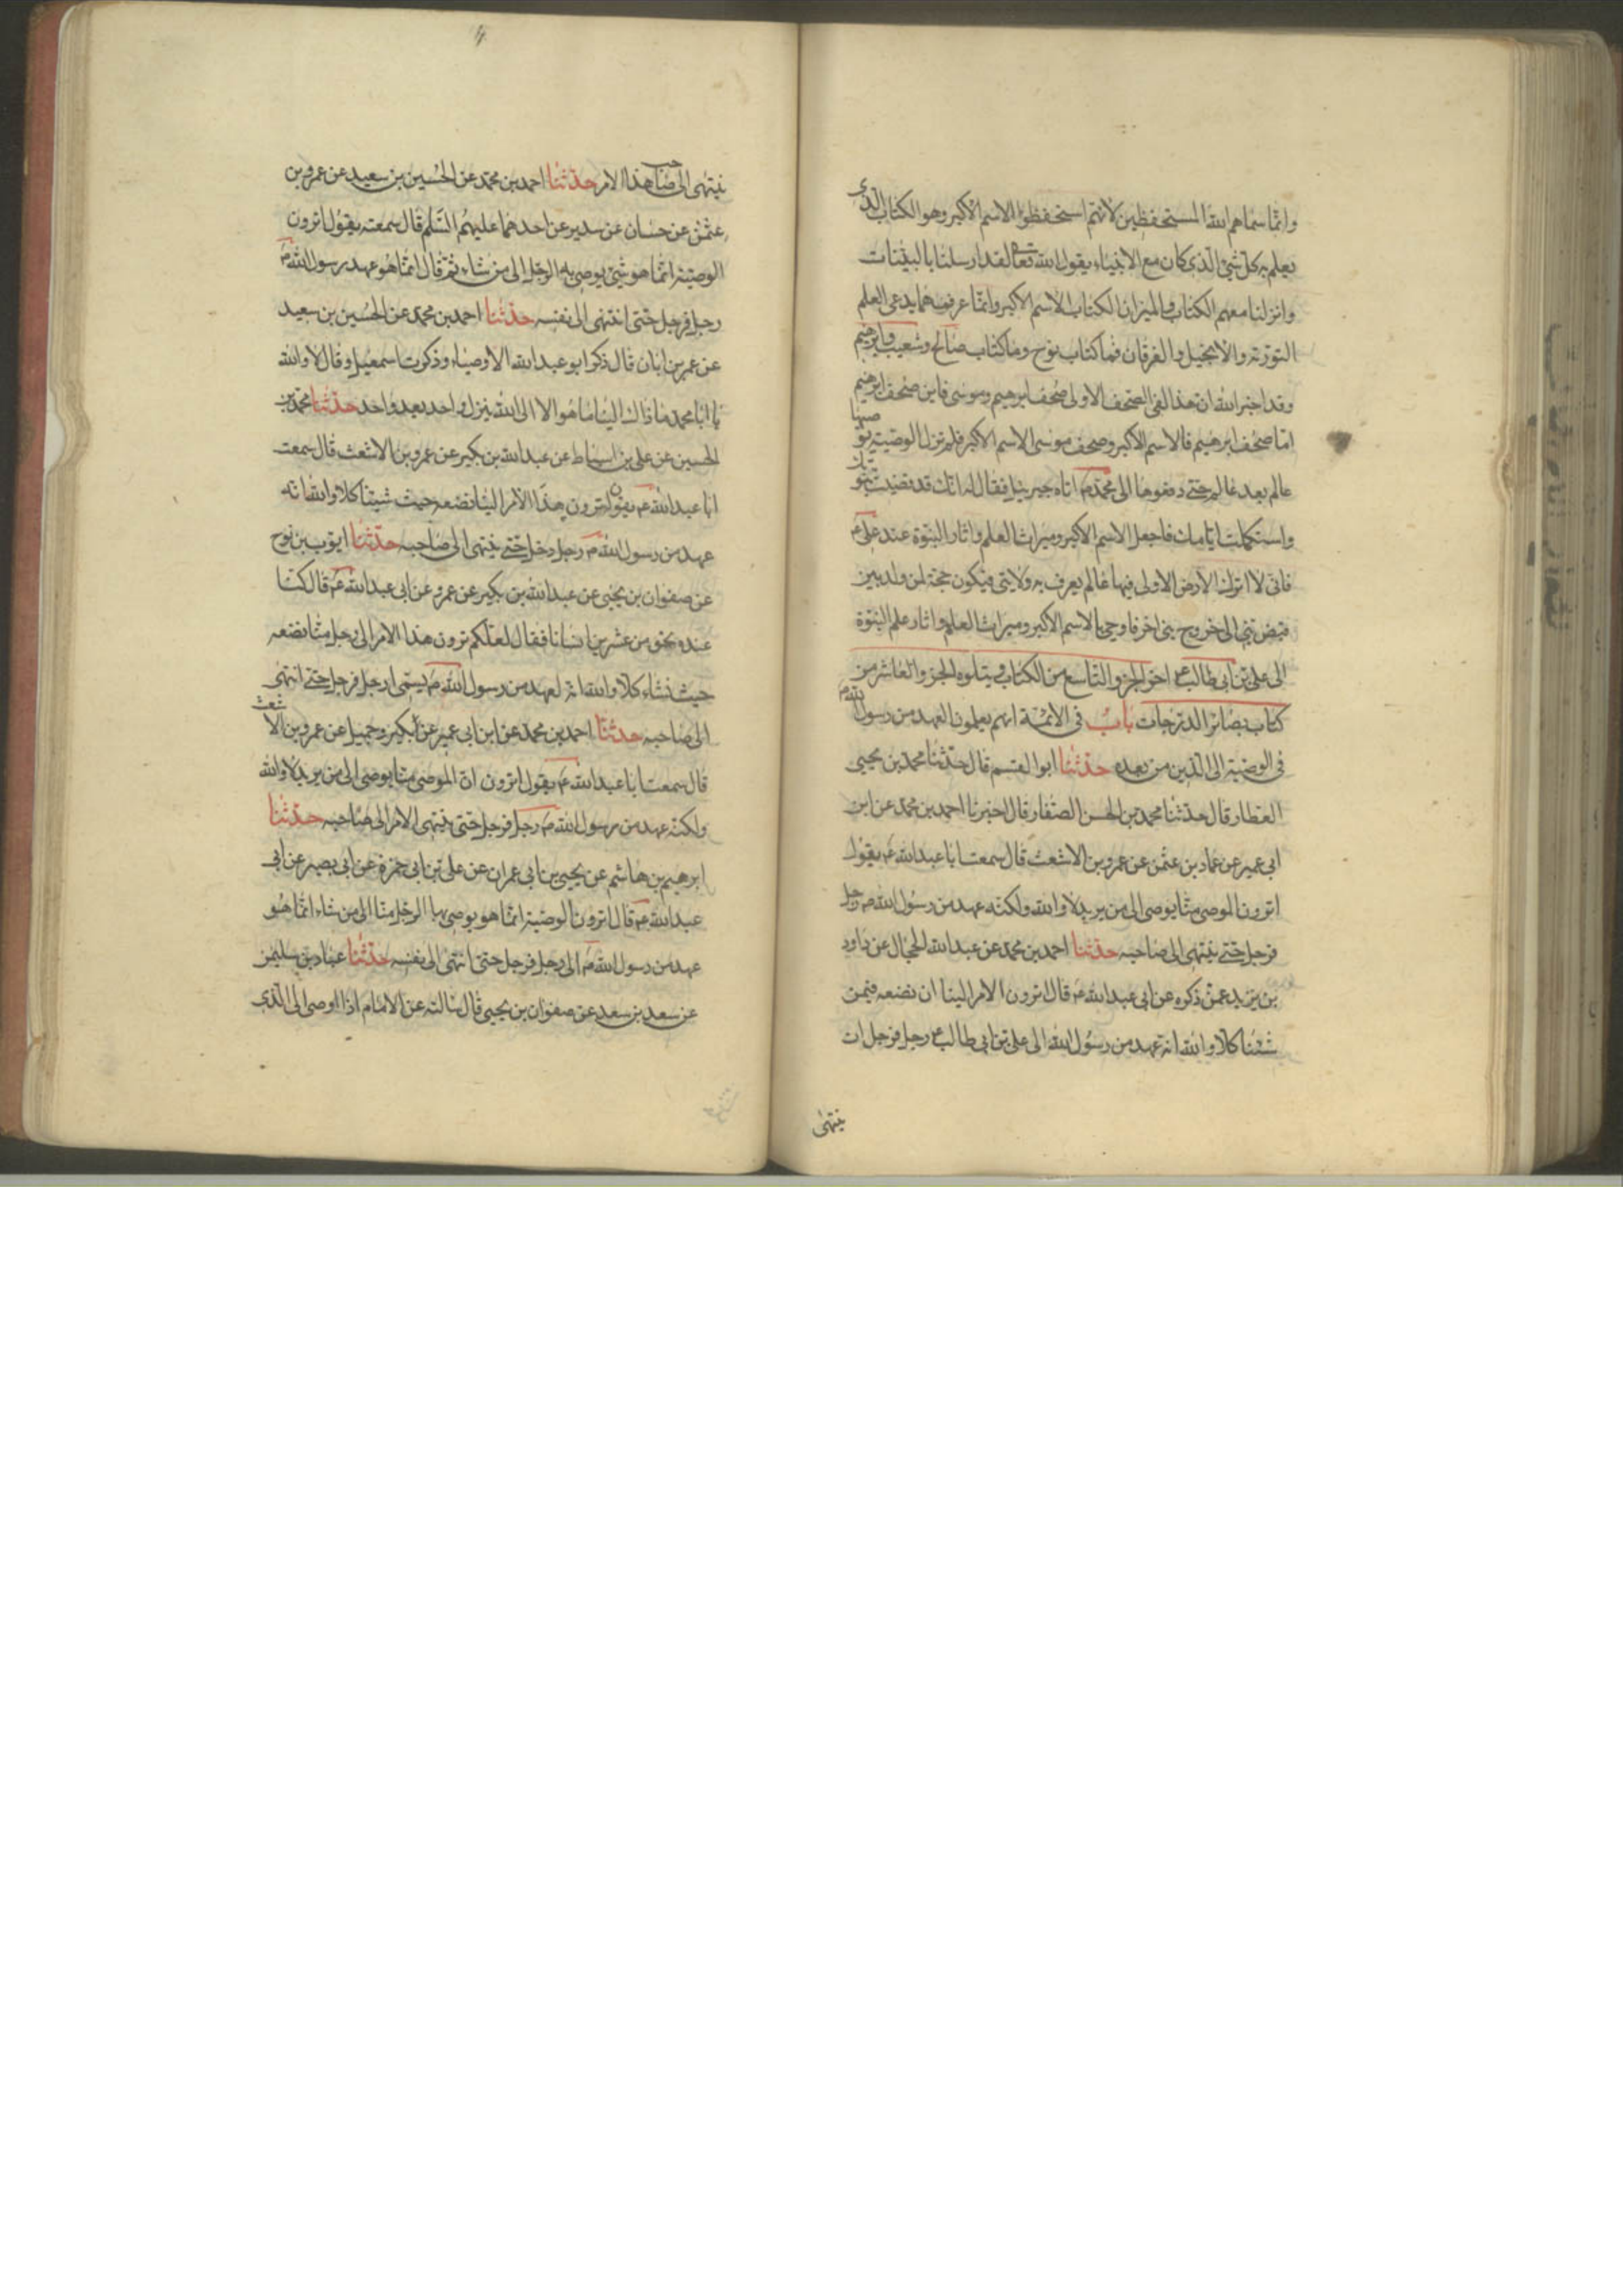 وانما سماهم الله المستحفظين لانهم استحفظوا الاسم الاكبر وهو الكتاب الذي
يعلم به كل شئ الذي كان مع الانبياء يقول الله تعالى لقد ارسلنا بالبينات
وانزلنا معهم الكتاب والميزان الكتاب الاسم الاكبر وانما عرف مما يدعى العلم
التورية والانجيل والفرقان فما كتاب نوح وما كتاب صالح وشعيب وابرهيم
وقد اخبر الله ان هذا لفي الصحف الاولى صحف ابرهيم وموسى فاين صحف ابرهيم
اما صحف ابرهيم فالاسم الاكبر وصحف موسى الاسم الاكبر فلم تزل الوصية يوصيها
عالم بعد عالم حتى دفعوها الى محمد ص اتاه جبرئيل فقال له انك قد قضيت نبوتك
واستكملت ايامك فاجعل الاسم الاكبر وميراث العلم واثار النبوة عند علي ع
فاني لا اترك الارض الا ولي فيها عالم يعرف به ولايتي فيكون حجة لمن ولد بين
قبض نبي الى خروج نبي اخر فاوحى بالاسم الاكبر وميراث العلم واثار علم النبوة
الى علي بن ابي طالب ع اخر الجزو التاسع من الكتاب ويتلوه الجزو العاشر من
كتاب بصائر الدرجات باب في الائمة انهم يعلمون العهد من رسول الله ص
في الوصية الى الذين من بعده حدثنا ابوالقسم قال حدثنا محمد بن يحيى
العطار قال حدثنا محمد بن الحسن الصفار قال اخبرنا احمد بن محمد عن ابن
ابي عمير عن حماد بن عثمن عن عمرو بن الاشعث قال سمعت ابا عبد الله ع يقول
اترون الموصى منا يوصى الى من يريد لا والله ولكنه عهد من رسول الله ص رجل
فرجل حتى ينتهى الى صاحبه حدثنا احمد بن محمد عن عبد الله الحجال عن داود
بن يزيد عمن ذكره عن ابي عبد الله ع قال اترون الامر الينا ان نضعه فيمن
شئنا كلا والله انه عهد من رسول الله الى علي بن ابي طالب ع رجل فرجل ان
ينتهى
ينتهى الى صاحب هذا الامر حدثنا احمد بن محمد عن الحسين بن سعيد عن عمرو بن
عثمن عن حسان عن سدير عن احدهما عليهم السلم قال سمعته يقول اترون
الوصية انما هو شئ يوصى به الرجل الى من شاء ثم قال انما هو عهد رسول الله ص
رجل فرجل حتى انتهى الى نفسه حدثنا احمد بن محمد عن الحسين بن سعيد
عن عمر بن ابان قال ذكر ابو عبد الله الاوصياء وذكرت اسمعيل وقال لا والله
يا ابا محمد ما ذاك الينا ما هو الا الى الله ينزل واحد بعد واحد حدثنا محمد بن
الحسين عن علي بن اسباط عن عبد الله بن بكير عن عمرو بن الاشعث قال سمعت
ابا عبد الله ع يقول اترون هذا الامر الينا نضعه حيث شيئنا كلا والله انه
عهد من رسول الله ص رجل رجل حتى ينتهى الى صاحبه حدثنا ايوب بن نوح
عن صفوان بن يحيى عن عبد الله بن بكير عن عمرو عن ابي عبد الله ع قال كنا
عنده نحو من عشرين انسانا فقال لعلكم ترون هذا الامر الى رجل منا نضعه
حيث نشاء كلا والله انه لعهد من رسول الله ص يسمى رجل فرجل حتى انتهى
الى صاحبه حدثنا احمد بن محمد عن ابن ابي عمير عن بكير وجميل عن عمرو بن الاشعث
قال سمعت ابا عبد الله ع يقول اترون ان الموصى منا يوصى الى من يريد لا والله
ولكنه عهد من رسول الله ص رجل فرجل حتى ينتهى الامر الى صاحبه حدثنا
ابرهيم بن هاشم عن يحيى بن ابي عمران عن علي بن ابي حمزة عن ابي بصير عن ابي
عبد الله ع قال اترون الوصية انما هو يوصى بها الرجل منا الى من شاء انما هو
عهد من رسول الله ص الى رجل فرجل حتى انتهى الى نفسه حدثنا عباد بن سليمن
عن سعد بن سعد عن صفوان بن يحيى قال سالته عن الامام اذا اوصى الى الذي